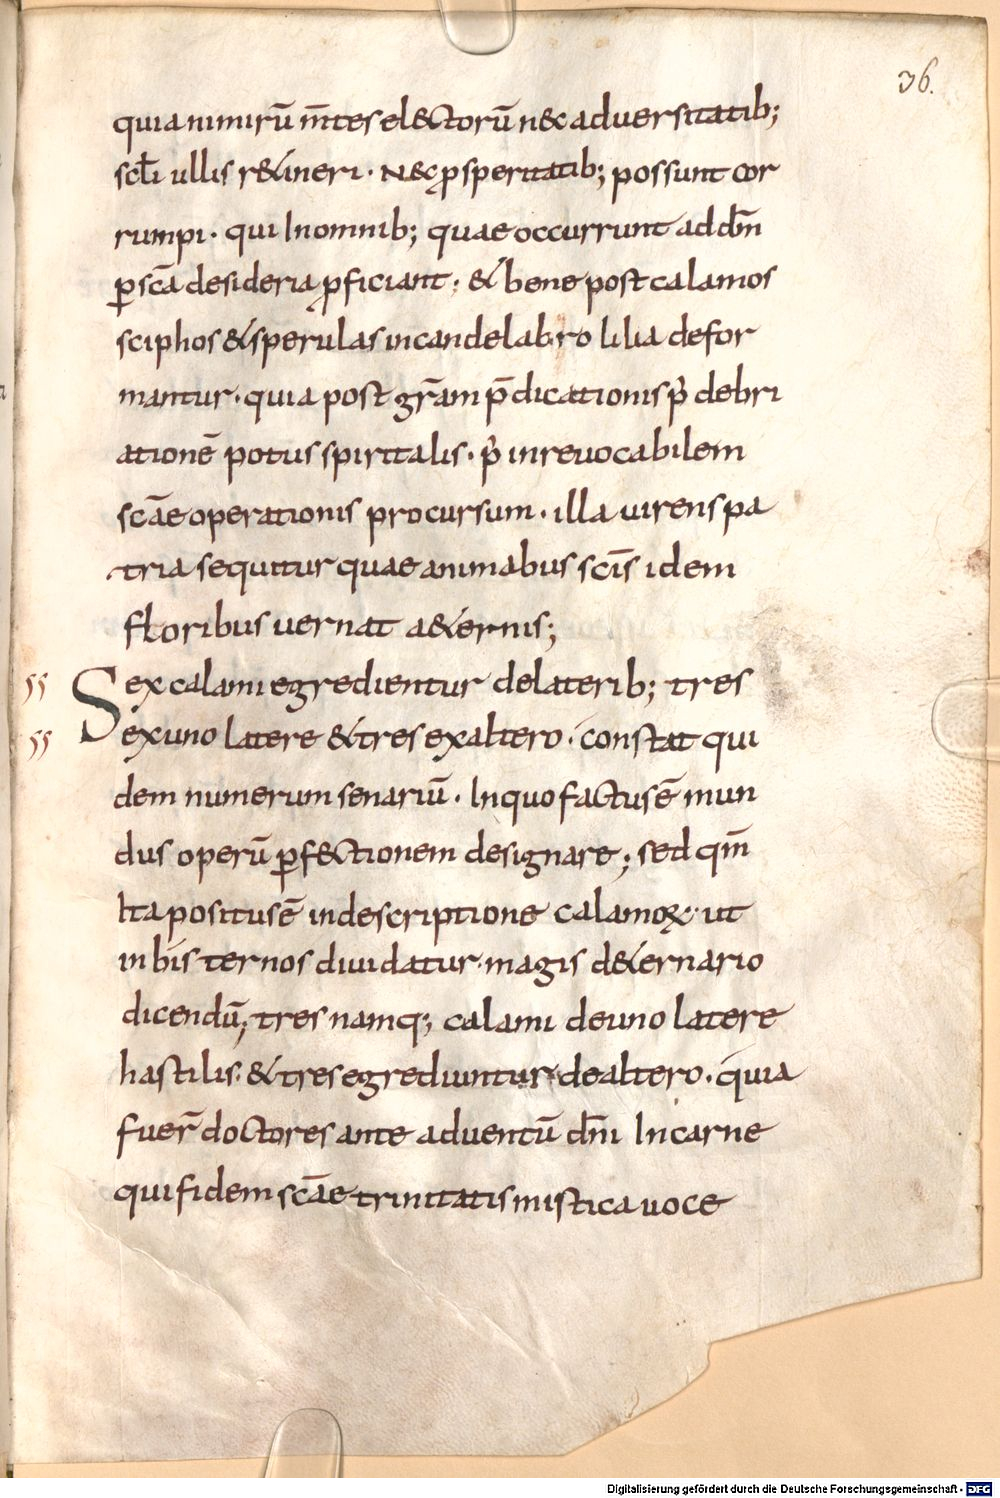 36.
quia nimirū m̄tes electorū nec adversitatib;
scl̄i ullis r&ineri · Nec ꝓsperitatib; possunt cor
rumpi · qui In omnib; quae occurrunt ad dn̄m
ꝑ scā desideria ꝓficiant; & bene post calamos
sciphos & sperulas in candelabro lilia defor
mantur · quia post grām p̄dicationis p̄ debri
ationē potus spiritalis · p̄ inrevocabilem
scāe operationis procursum · illa uirens pa
tria sequitur quae animabus scīs idem
floribus uernat a&ernis;
Sex calami egredientur de laterib; tres
ex uno latere & tres ex altero · constat qui
dem numerum senariū · In quo factus ē mun
dus operū ꝑfectionem designare; sed qm̄
Ita positus ē in descriptione calamoꝝ · ut
in bis ternos diuidatur · magis de ternario
dicendū; tres namq; calami de uno latere
hastilis · & tres egrediuntur de altero · quia
fuer̄ doctores ante adventū dn̄i In carne
qui fidem scāe trinitatis mistica uoce
Digitalisierung gefördert durch die Deutsche Forschungsgemeinschaft - DFG